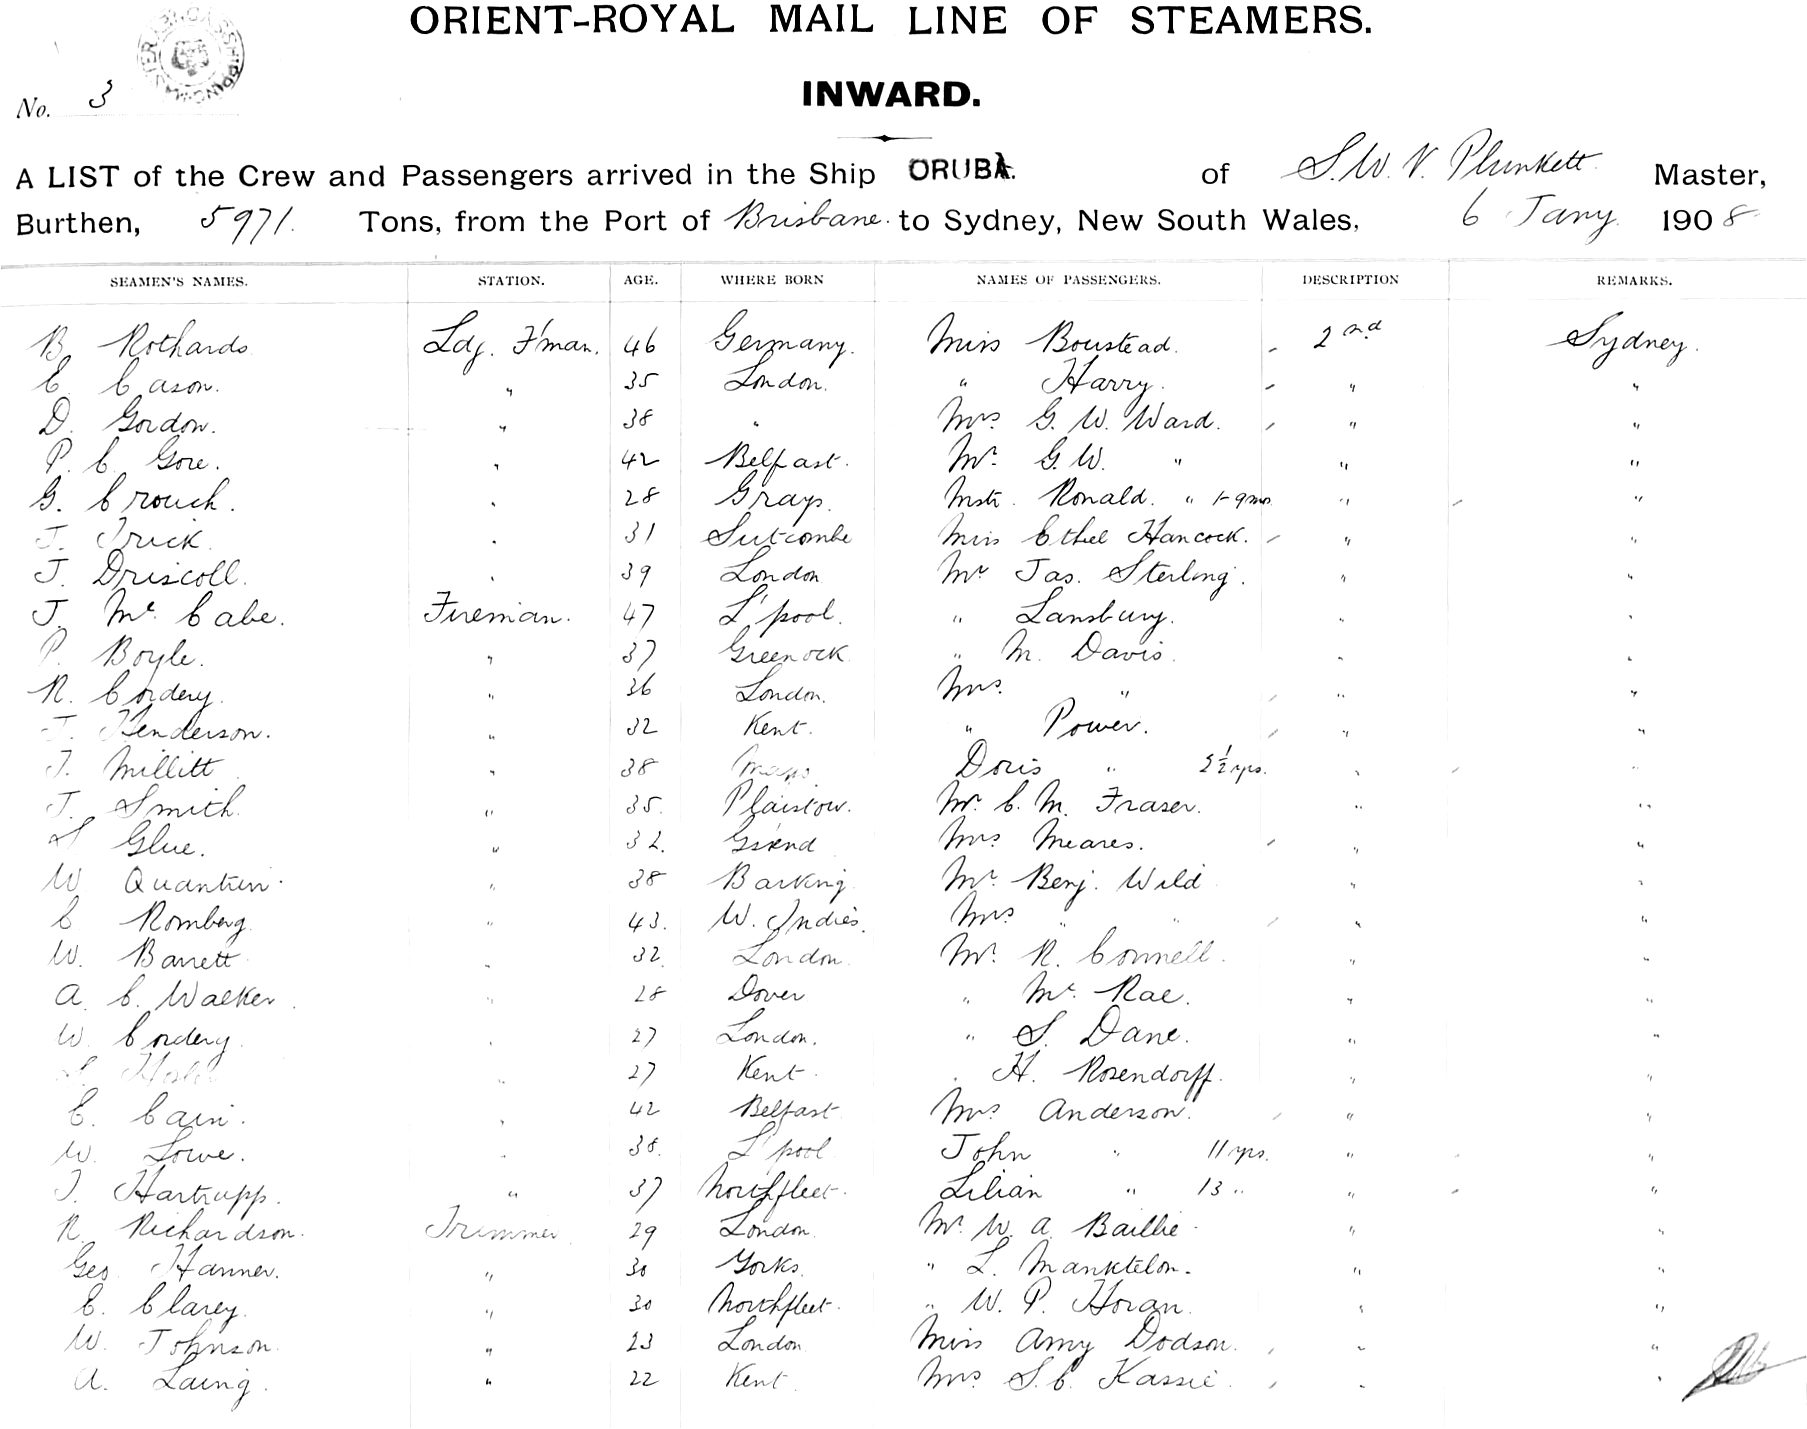 ORIENT-ROYAL MAIL LINE OF STEAMERS.
No. 3
INWARD.
A LIST of the Crew and Passengers arrived in the Ship ORUBA. of S. W. V. Plunkett. Master,
Burthen, 5971. Tons, from the Port of Brisbane. to Sydney, New South Wales, 6 Jany. 1908
SEAMEN'S NAMES. STATION. AGE. WHERE BORN NAMES OF PASSENGERS. DESCRIPTION REMARKS.
B. Rothards Ldg. F'man. 46 Germany. Miss Boustead. 2nd Sydney.
C. Cason. " 35 London. " Harry. " "
D. Gordon. " 38 " Mrs. G. W. Ward. " "
P. C. Gore. " 42 Belfast. Mr. G. W. " " "
G. Crouch. " 28 Grays. Mstr. Ronald. " 1-9 mos " "
J. Trick. " 31 Sutcombe Miss Ethel Hancock. " "
J. Driscoll. " 39 London Mr Jas. Sterling. " "
J. Mc Cabe. Fireman. 47 L'pool. " Lansbury. " "
P. Boyle. " 37 Greenock. " M. Davis. " "
R. Cordery. " 36 London. Mrs. " " "
J. Henderson. " 32 Kent. " Power. " "
J. Millitt " 38 Doris " 2½ yrs. " "
J. Smith. " 35. Plaistow. Mr. C. M. Fraser. " "
S Glue. " 32. G'send Mrs Meares. " "
W Quantrin. " 38 Barking. Mr. Benj. Wild " "
C Romberg. " 43. W. Indies. Mrs " " " "
W. Barrett " 32. London. Mr. R. Connell. " "
A. C. Walker. " 28 Dover " Mc. Rae. " "
W. Cordery. " 27 London. " S. Dane. " "
" 27 Kent. " H. Rosendorff. " "
C. Cain. " 42 Belfast. Mrs Anderson. " "
W. Lowe. " 38. L'pool John " 11 yrs. " "
J. Hartrupp. " 37 Northfleet. Lilian " 13 " " "
R. Richardson. Trimmer. 29 London. Mr. W. A. Baillie. " "
Geo. Hanner. " 30 Yorks. " L. Manktelon. " "
C. Clarey. " 30 Northfleet. " W. P. Horan. " "
W. Johnson. " 23 London Miss Amy Dodson. " "
A. Laing. " 22 Kent. Mrs. S. C. Kassie. " "